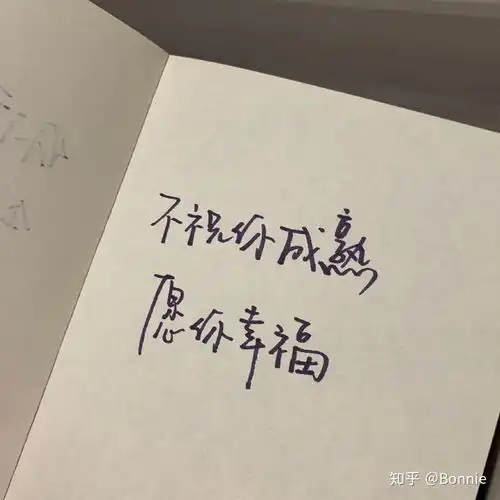 不祝你成熟
愿你幸福
知乎 @Bonnie